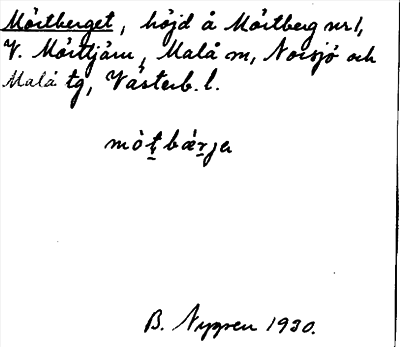 Mörtberget, höjd å Mörtberg nr 1,
V. Mörttjärn, Malå sn, Norsjö och
Malå tg, Västerb. l.
mö̀t̠bǽr̠ja
B. Nygren 1930.